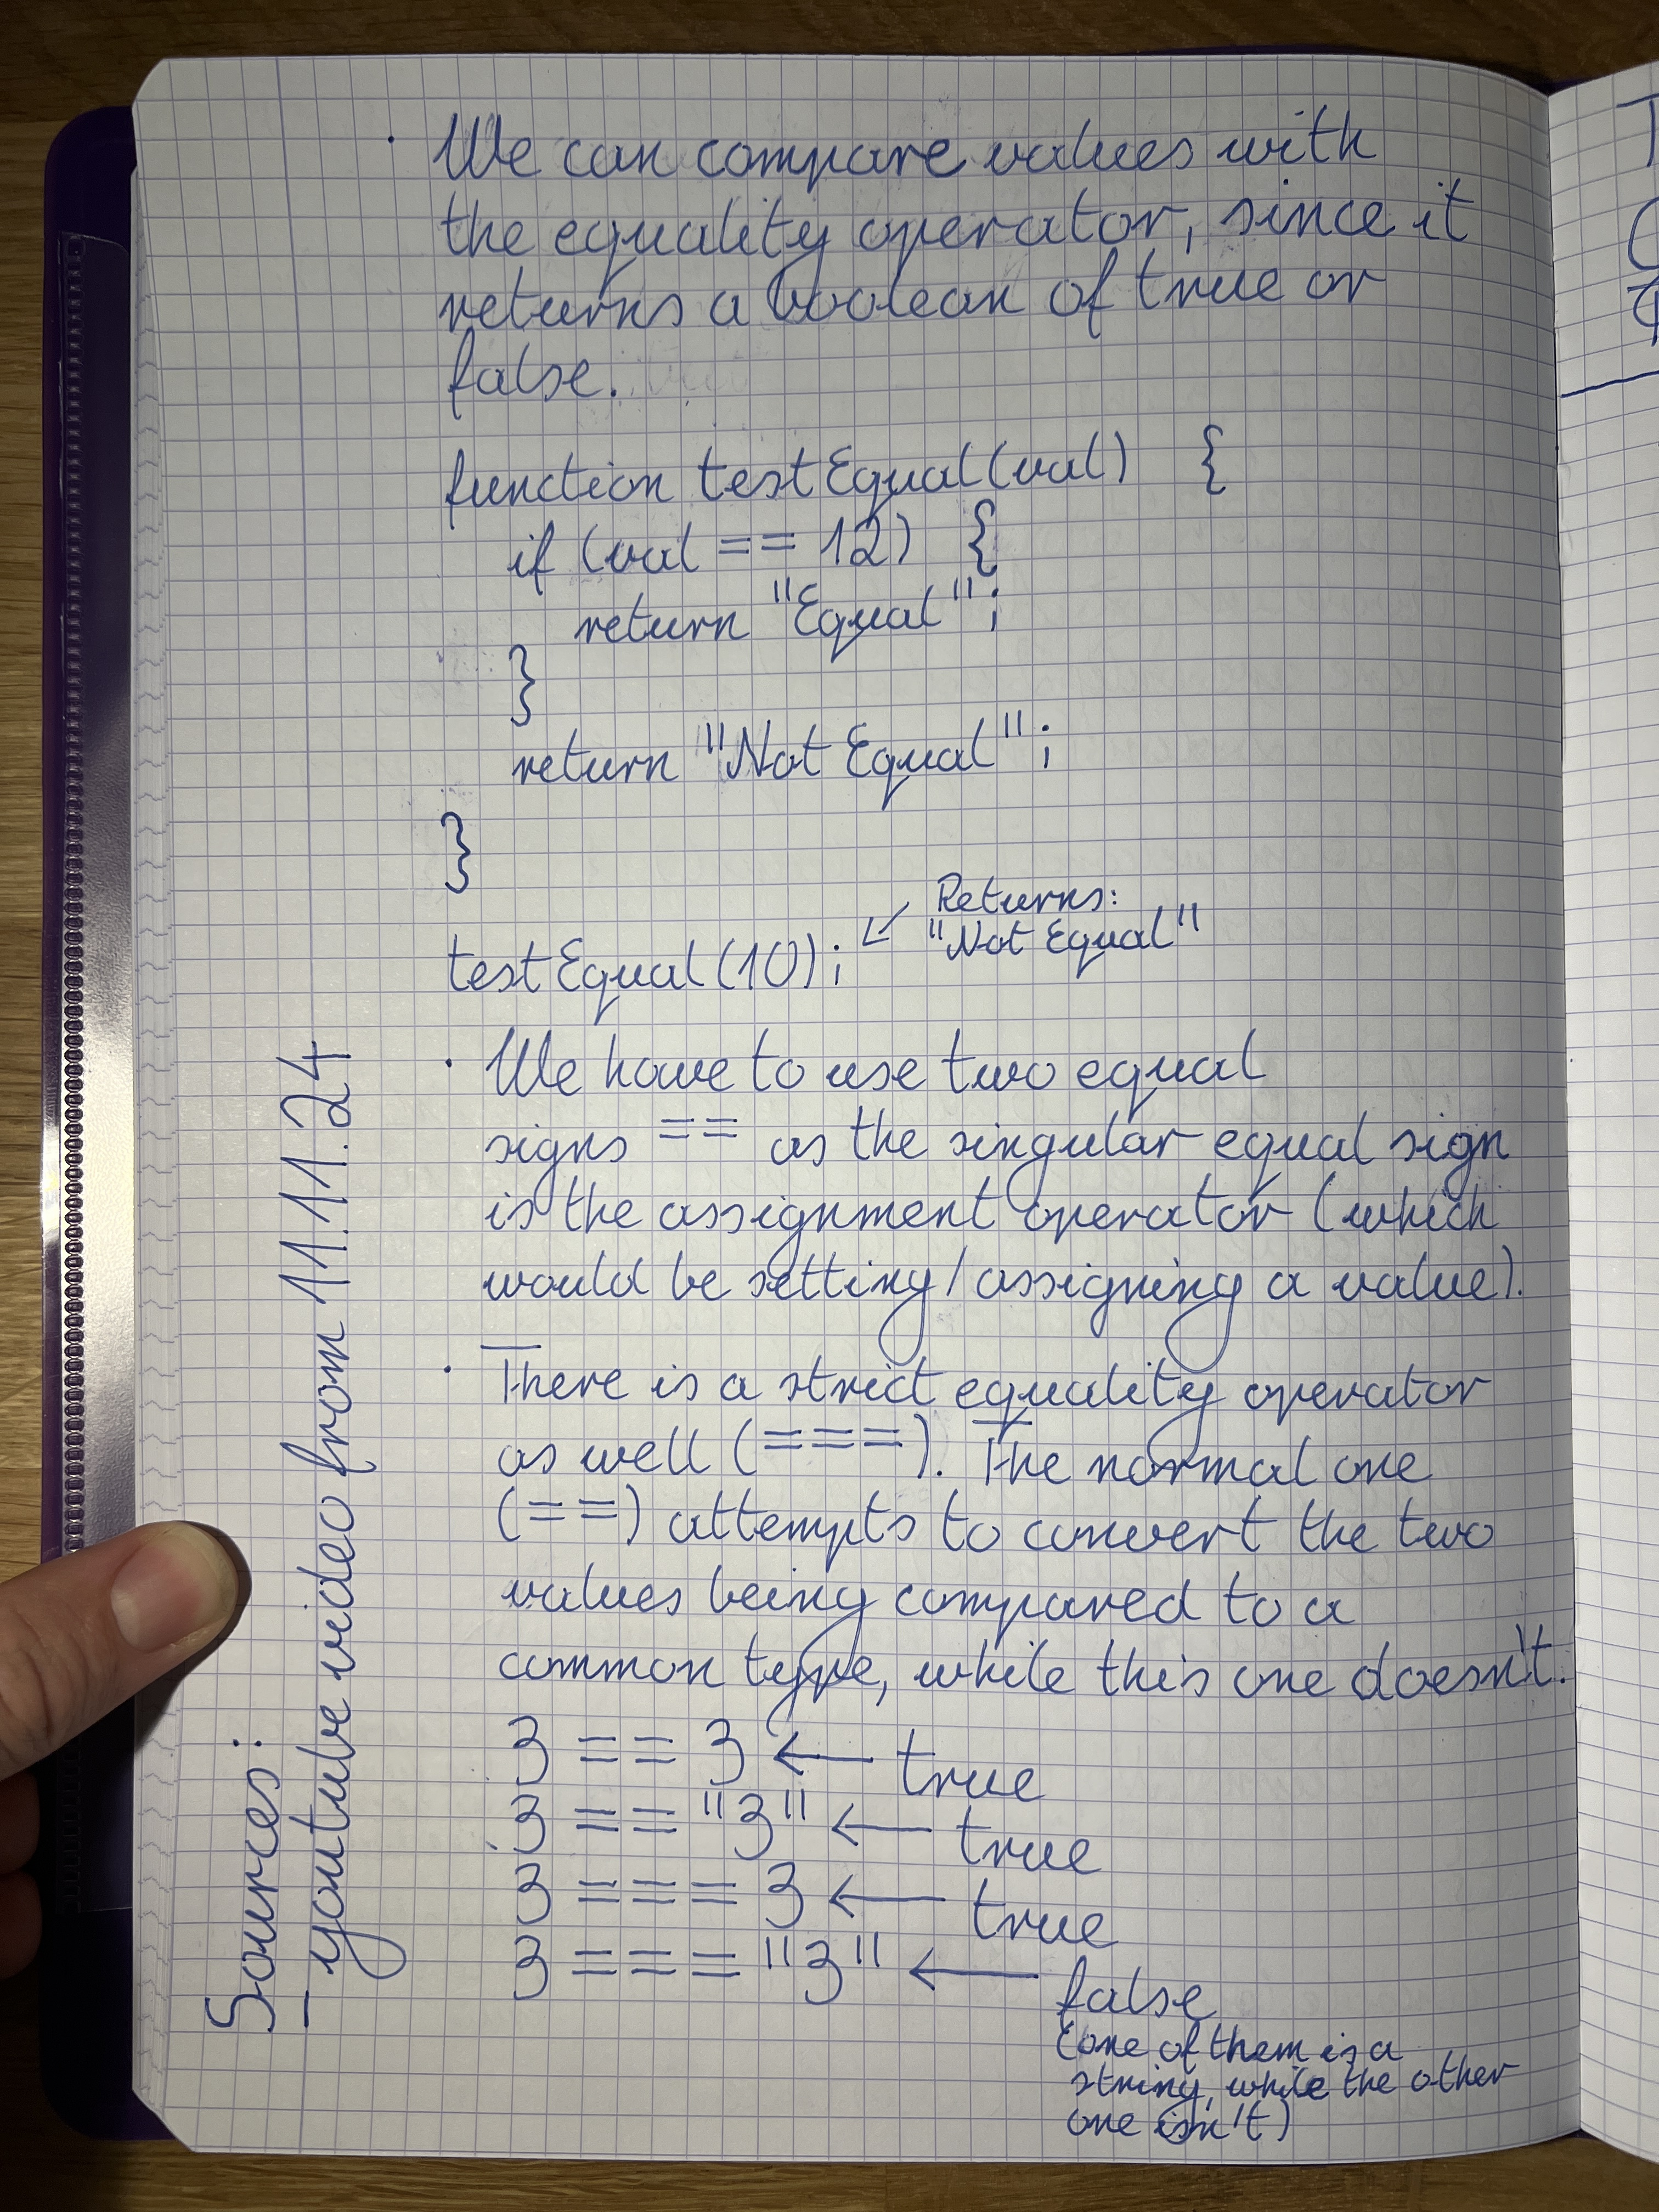 · We can compare values with
the equality operator, since it
returns a boolean of true or
false.
function testEqual(val) {
if (val == 12) {
return "Equal";
}
return "Not Equal";
}
testEqual(10); ↙ Returns:
"Not Equal"
· We have to use two equal
signs == as the singular equal sign
is the assignment operator (which
would be setting/assigning a value).
· There is a strict equality operator
as well (===). The normal one
(==) attempts to convert the two
values being compared to a
common type, while this one doesn't.
3 == 3 ← true
3 == "3" ← true
3 === 3 ← true
3 === "3" ← false
(one of them is a
string, while the other
one isn't)
Sources:
- youtube video from 11.11.24